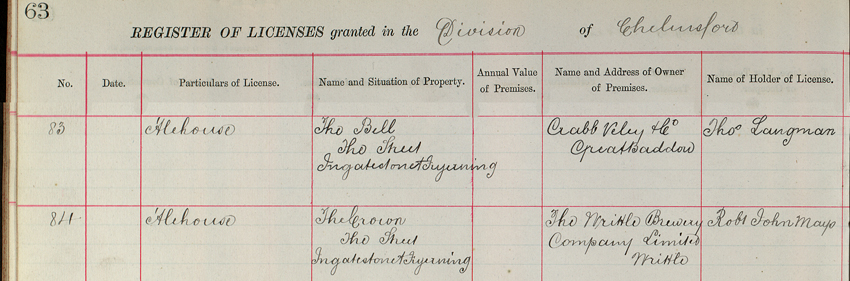 63
REGISTER OF LICENSES granted in the Division of Chelmsford
No. Date. Particulars of License. Name and Situation of Property. Annual Value of Premises. Name and Address of Owner of Premises. Name of Holder of License.
83 Alehouse The Bell Crabb Veley & Co Thos Langman
The Street Great Baddow
Ingatestone & Fryerning
84 Alehouse The Crown The Writtle Brewery Robt John Mayo
The Street Company Limited
Ingatestone & Fryerning Writtle